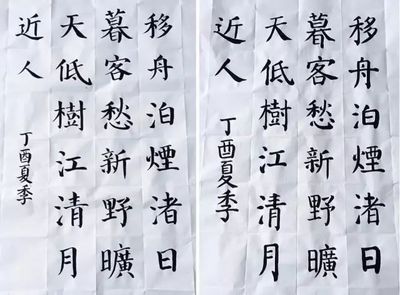 移舟泊煙渚日
暮客愁新野曠
天低樹江清月
近人
丁酉夏季
移舟泊煙渚日
暮客愁新野曠
天低樹江清月
近人
丁酉夏季